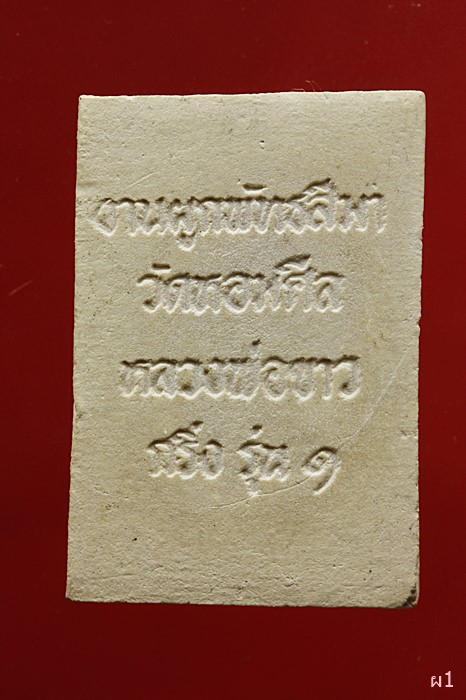 งานผูกพัทธสีมา
วัดหอมศีล
หลวงพ่อขาว
กริ่ง รุ่น ๑
ผ1